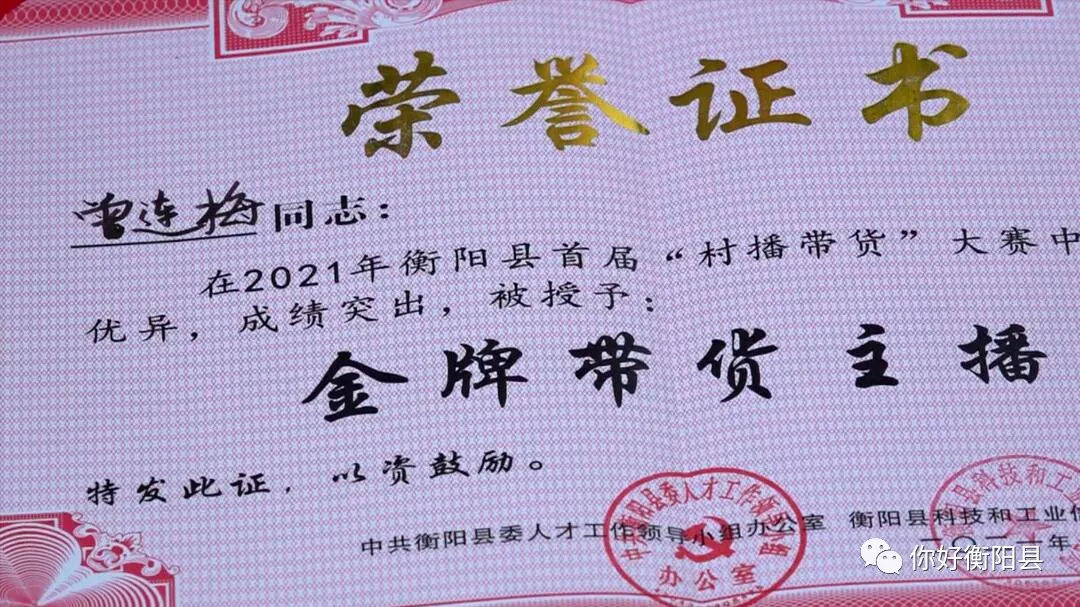 荣誉证书
曾连梅同志：
在2021年衡阳县首届“村播带货”大赛中
优异，成绩突出，被授予：
金牌带货主播
特发此证，以资鼓励。
中共衡阳县委人才工作领导小组办公室 衡阳县科技和工业信
二〇二一年
中共衡阳县委人才工作领导小组
办公室
县科技和工业
你好衡阳县